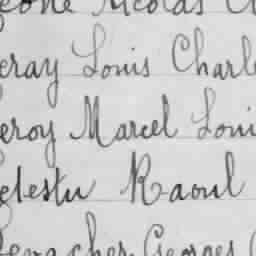 eone Nicolas
eray Louis Charl
eroy Marcel Loui
elestu Raoul
Georges